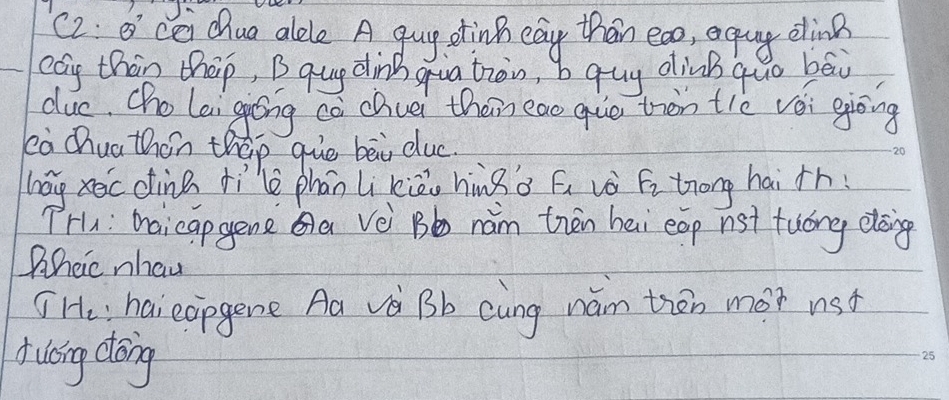 C2: ở cà chua alele A quy định cây thân cao, a quy định
cây thân thấp, B quy định quả tròn, b quy định quả bầu
dục. Cho lai giống cà chua thân cao quả tròn t/c với giống
cà chua thân thấp quả bầu dục.
20
hãy xác định tỉ lệ phân li kiểu hình ở F1 và F2 trong hai th:
TH1: hai cặp gene Aa và Bb nằm trên hai cặp nst tương đồng
khác nhau
TH2: hai cặp gene Aa và Bb cùng nằm trên một nst
tương đồng
25